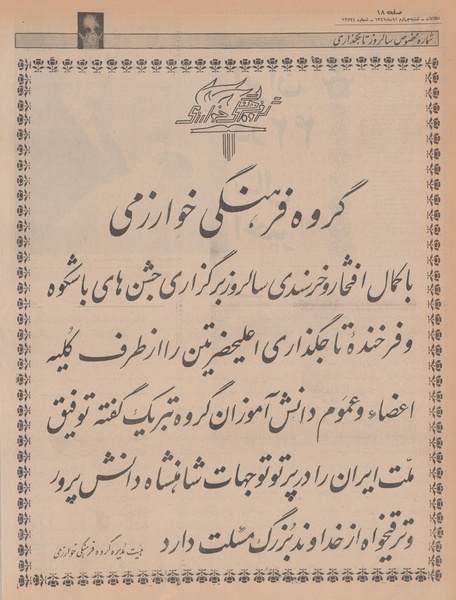 صفحه ۱۸
شماره مخصوص سالروز تاجگذاری
گروه فرهنگی خوارزمی
گروه فرهنگی خوارزمی
با کمال افتخار و خرسندی سالروز برگزاری جشن های باشکوه
و فرخندهٔ تاجگذاری اعلیحضرتین را از طرف کلیه
اعضاء و عموم دانش آموزان گروه تبریک گفته توفیق
ملت ایران را در پرتو توجهات شاهنشاه دانش پرور
و ترقیخواه از خداوند بزرگ مسئلت دارد
هیئت مدیره گروه فرهنگی خوارزمی